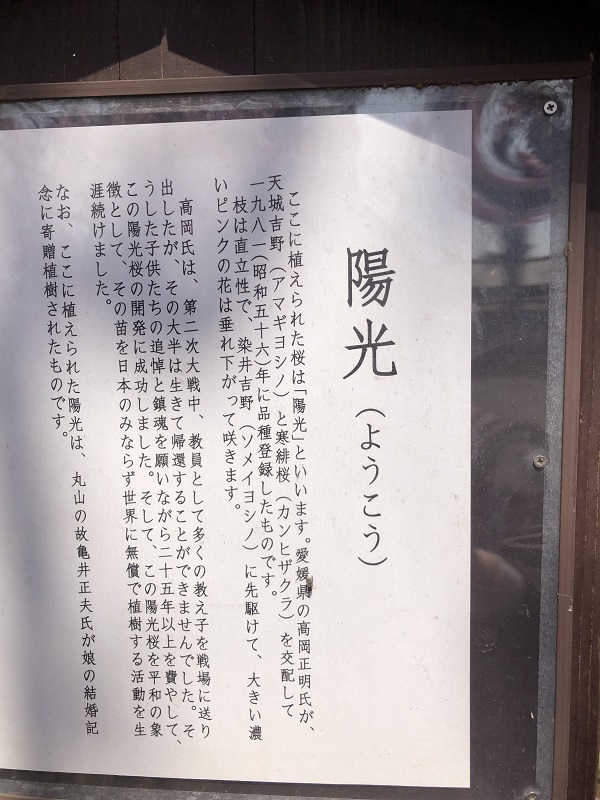 陽光（ようこう）
ここに植えられた桜は「陽光」といいます。愛媛県の高岡正明氏が、
天城吉野（アマギヨシノ）と寒緋桜（カンヒザクラ）を交配して
一九八一（昭和五十六）年に品種登録したものです。
枝は直立性で、染井吉野（ソメイヨシノ）に先駆けて、大きい濃
いピンクの花は垂れ下がって咲きます。
高岡氏は、第二次大戦中、教員として多くの教え子を戦場に送り
出したが、その大半は生きて帰還することができませんでした。そ
うした子供たちの追悼と鎮魂を願いながら二十五年以上を費やして、
この陽光桜の開発に成功しました。そして、この陽光桜を平和の象
徴として、その苗を日本のみならず世界に無償で植樹する活動を生
涯続けました。
なお、ここに植えられた陽光は、丸山の故亀井正夫氏が娘の結婚記
念に寄贈植樹されたものです。